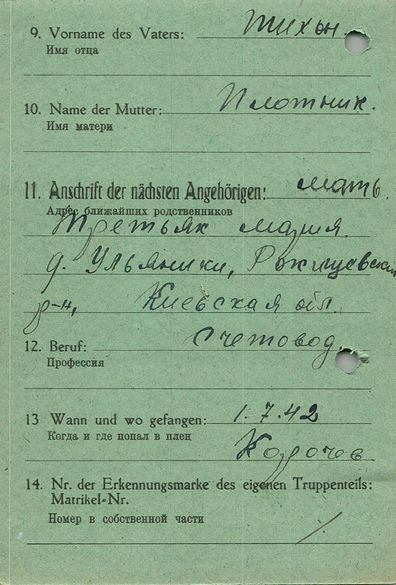 9. Vorname des Vaters: Тихон.
Имя отца
10. Name der Mutter: Плотник.
Имя матери
11. Anschrift der nächsten Angehörigen: мать.
Адрес ближайших родственников
Третьяк Мария
д. Ульяники,
р-н, Киевская обл.
12. Beruf: Счетовод.
Профессия
13 Wann und wo gefangen: 1.7.42
Когда и где попал в плен
14. Nr. der Erkennungsmarke des eigenen Truppenteils:
Matrikel-Nr.
Номер в собственной части